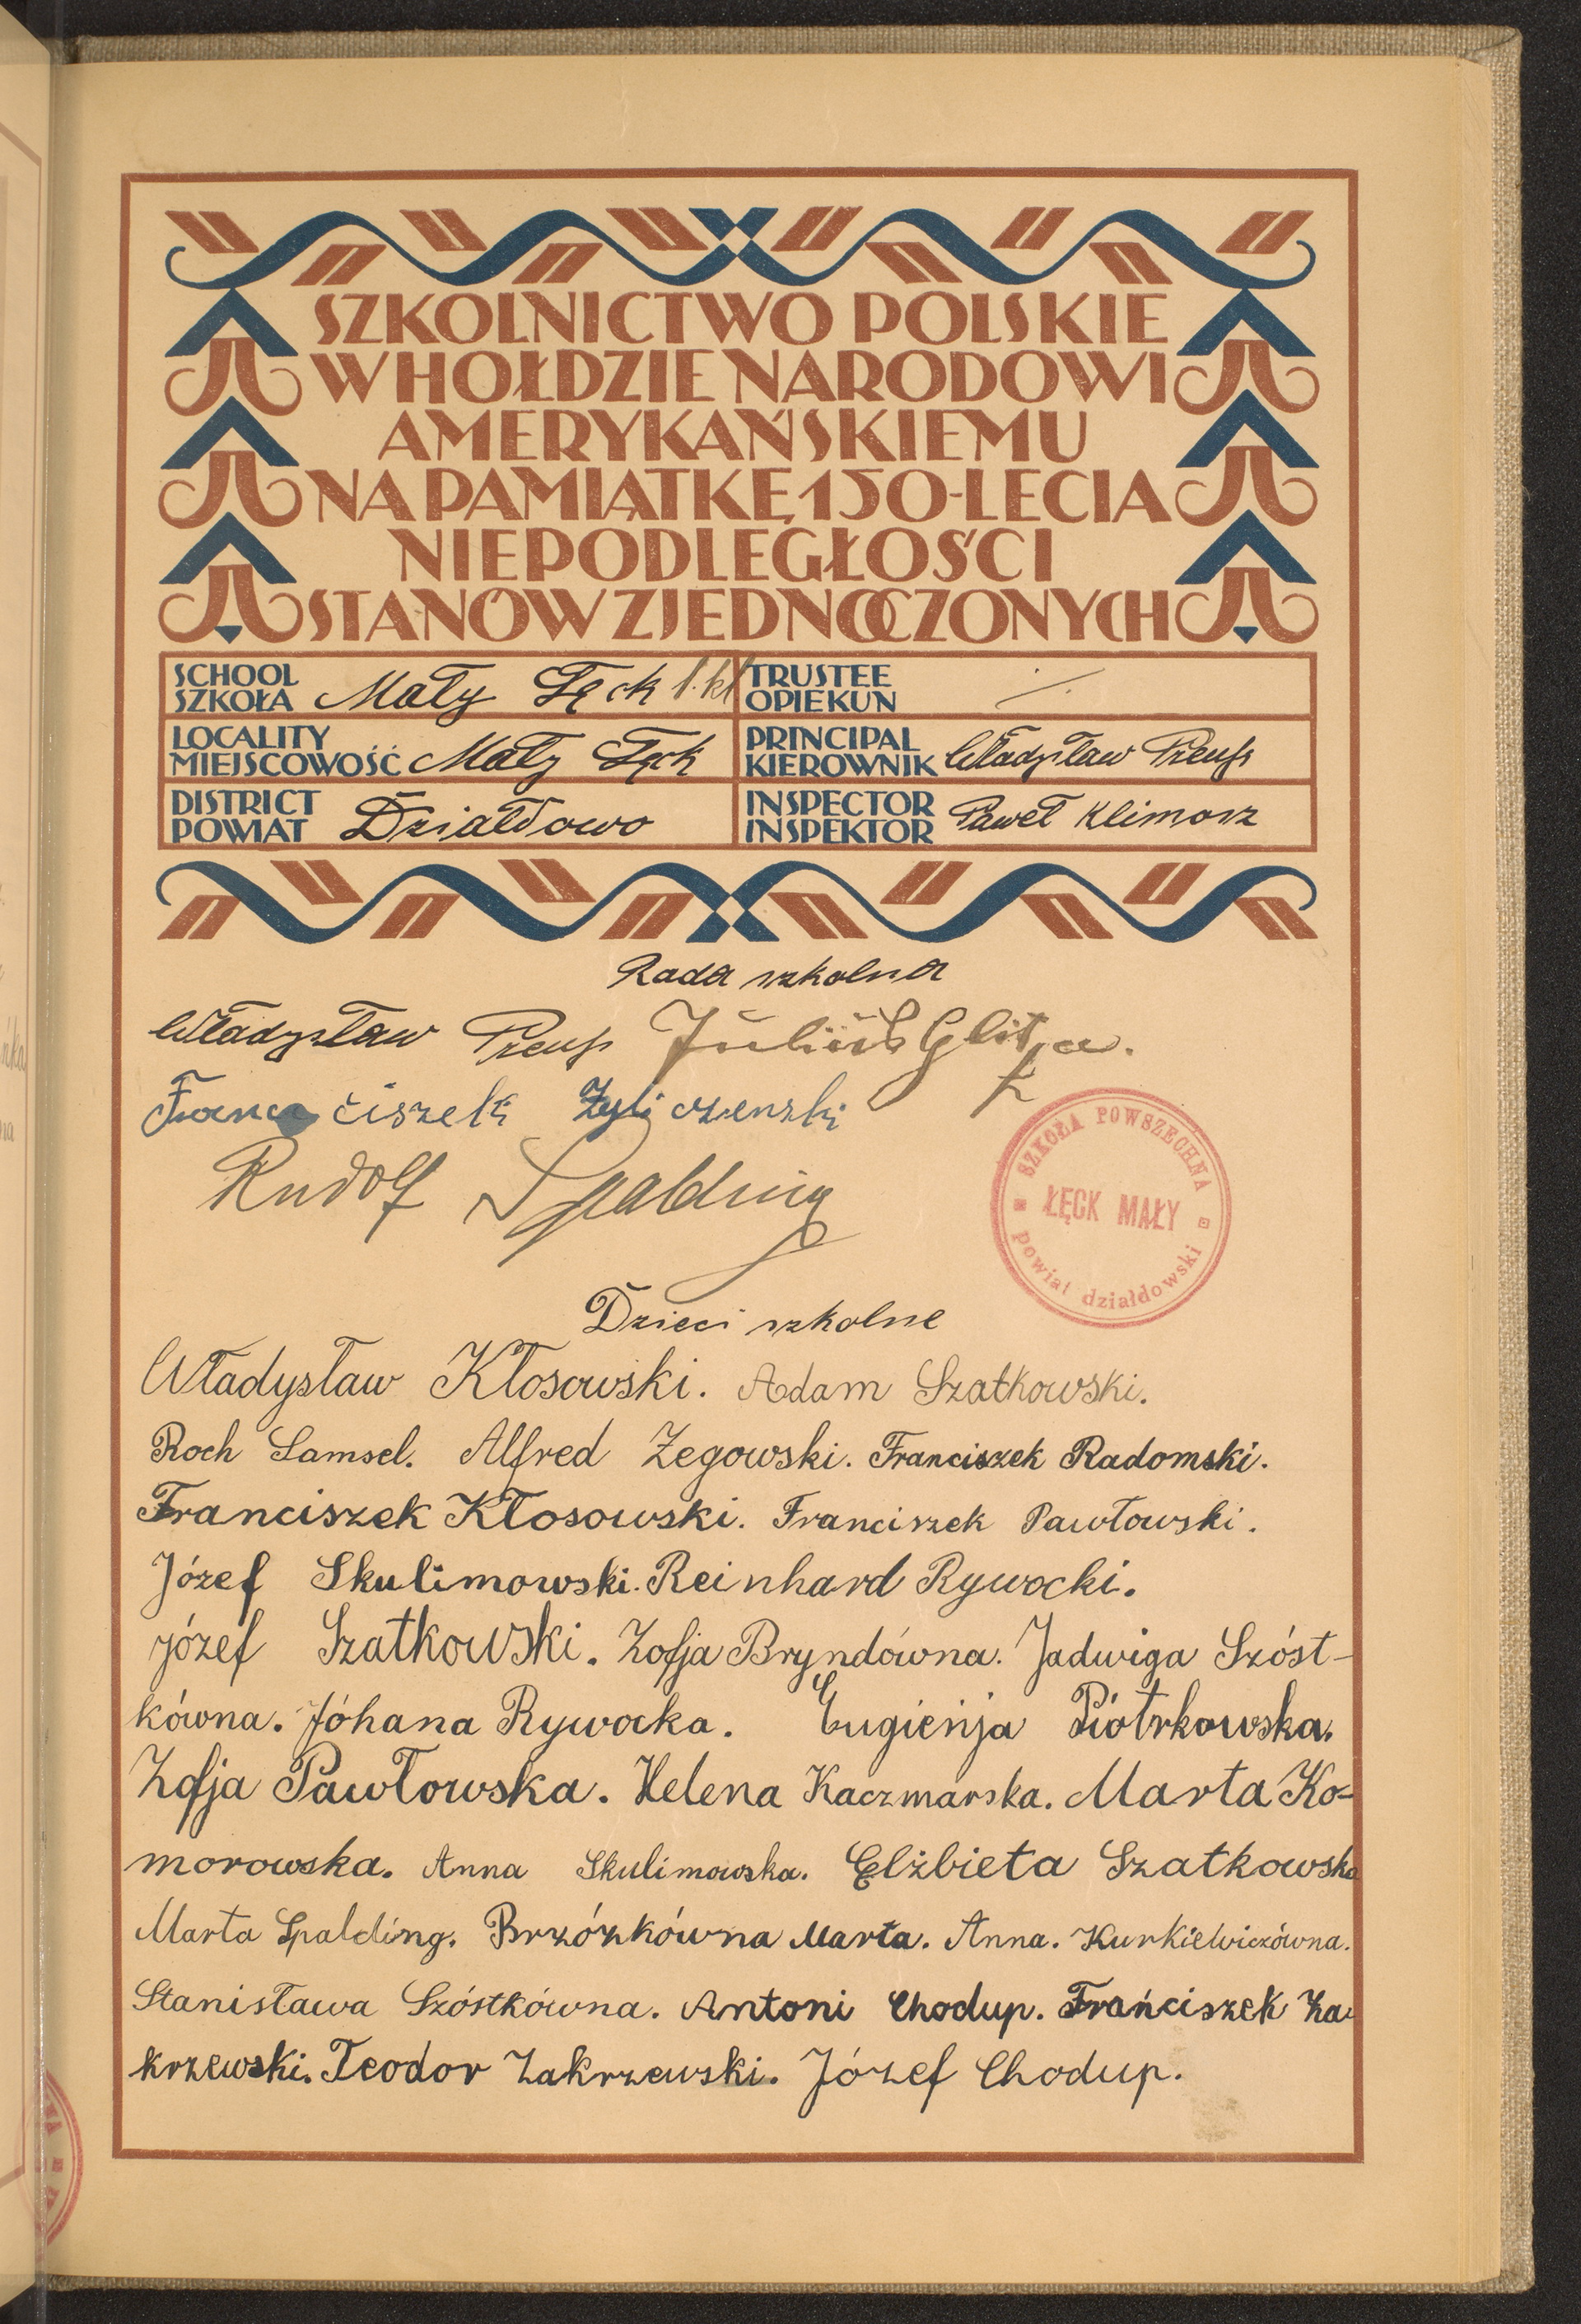 SZKOLNICTWO POLSKIE
W HOŁDZIE NARODOWI
AMERYKAŃSKIEMU
NA PAMIĄTKĘ 150-LECIA
NIEPODLEGŁOŚCI
STANÓW ZJEDNOCZONYCH
SCHOOL
SZKOŁA Mały Łęck 1. kl
TRUSTEE
OPIEKUN
LOCALITY
MIEJSCOWOŚĆ Mały Łęck
PRINCIPAL
KIEROWNIK Władysław Preuß
DISTRICT
POWIAT Działdowo
INSPECTOR
INSPEKTOR Paweł Klimosz
Rada szkolna
Władysław Preuß Juliús Glitza.
Franciszek
Rudolf Spalding
SZKOŁA POWSZECHNA
ŁĘCK MAŁY
powiat działdowski
Dzieci szkolne
Władysław Kłosowski. Adam Szatkowski.
Roch Samsel. Alfred Żegowski. Franciszek Radomski.
Franciszek Kłosowski. Franciszek Pawłowski.
Józef Skulimowski. Reinhard Rywocki.
Józef Szatkowski. Zofja Bryndówna. Jadwiga Szóst-
kówna. Jóhana Rywocka. Eugienja Piotrkowska.
Zofja Pawłowska. Helena Kaczmarska. Marta Ko-
morowska. Anna Skulimowska. Elżbieta Szatkowska
Marta Spalding. Brzózkówna Marta. Anna. Kurkiewiczówna.
Stanisława Szóstkówna. Antoni Chodup. Frańciszek Za-
krzewski. Teodor Zakrzewski. Józef Chodup.